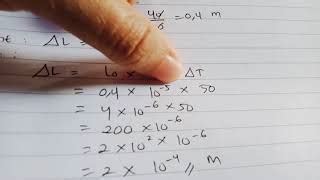 40/ = 0,4 m
ΔL
ΔL = lo × ΔT
= 0,4 × 10⁻⁵ × 50
= 4 × 10⁻⁶ × 50
= 200 × 10⁻⁶
= 2 × 10² × 10⁻⁶
= 2 × 10⁻⁴ // m